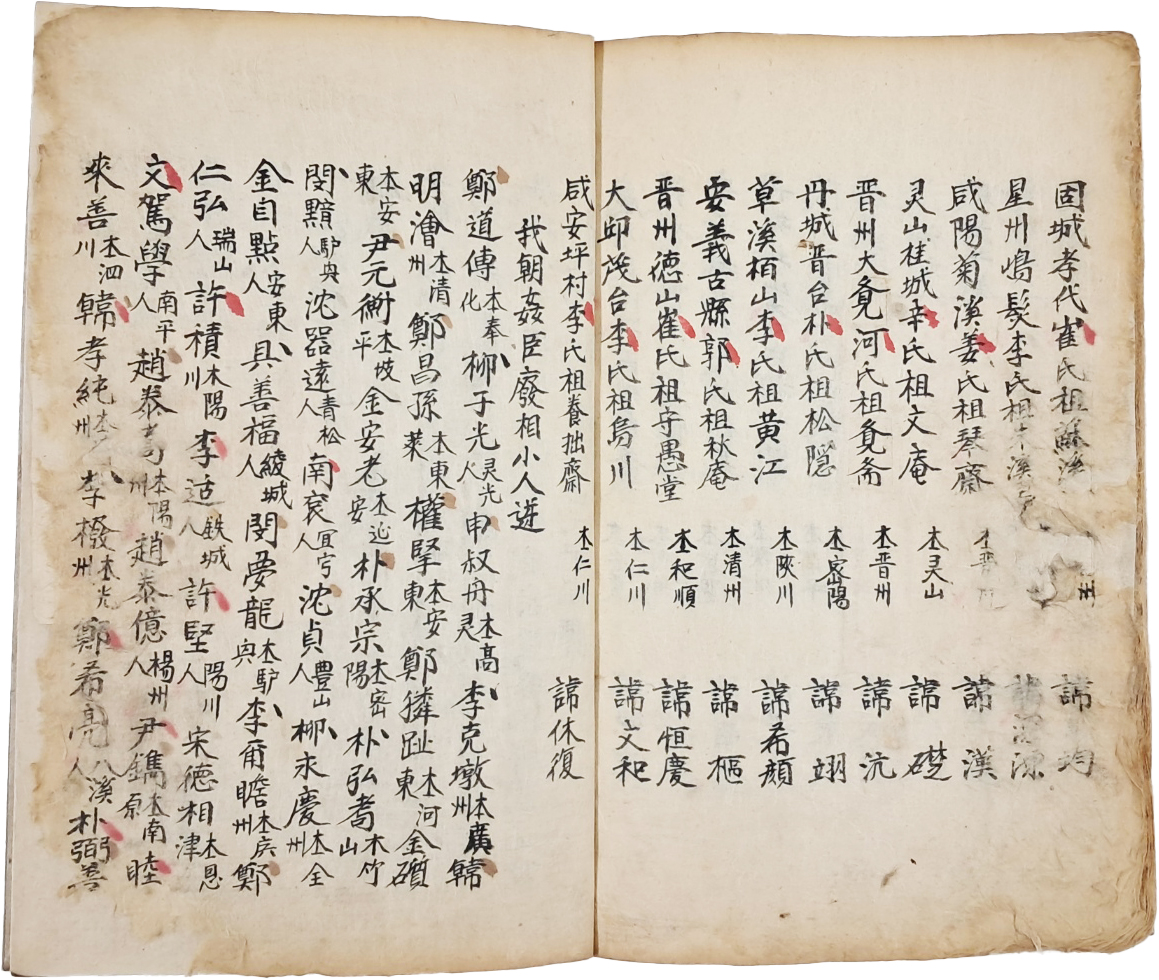 固城孝代崔氏祖蘇溪 諱均
星州嶋髮李氏祖 溪 諱 源
咸陽菊溪姜氏祖琴齋 本晋 諱漢
灵山桂城辛氏祖文庵 本灵山 諱礎
晋州大㝵河氏祖㝵斎 本晋州 諱沆
丹城晋台朴氏祖松隠 本密陽 諱翊
草溪栢山李氏祖黄江 本陜川 諱希顔
安義古縣郭氏祖秋庵 本清州 諱樞
晋州徳山崔氏祖守愚堂 本和順 諱恒慶
大邱茂台李氏祖烏川 本仁川 諱文和
咸安坪村李氏祖養拙齋 本仁川 諱休復
我朝姦臣廢相小人逆
鄭道傳本奉化 柳子光灵光人 申叔舟本高灵 李克墩本廣州 韓
明澮本清州 鄭昌孫本東萊 權擥本安東 鄭麟趾本河東 金礩
本安東 尹元衡本坡平 金安老本延安 朴承宗本密陽 朴弘耉本竹山
閔黯驢興人 沈器遠青松人 南袞宜寧人 沈貞豊山人 柳永慶本全州
金自點安東人 具善福綾城人 閔夢龍本驢興 李爾瞻本廣州 鄭
仁弘瑞山人 許積本陽川 李适鉄城人 許堅陽川人 宋德相本恩津
文駕學南平人 趙泰耇本陽州 趙泰億楊州人 尹鑴本南原 睦
來善本泗川 韓孝純本 州 李撥本光州 鄭希亮八溪人 朴弼善